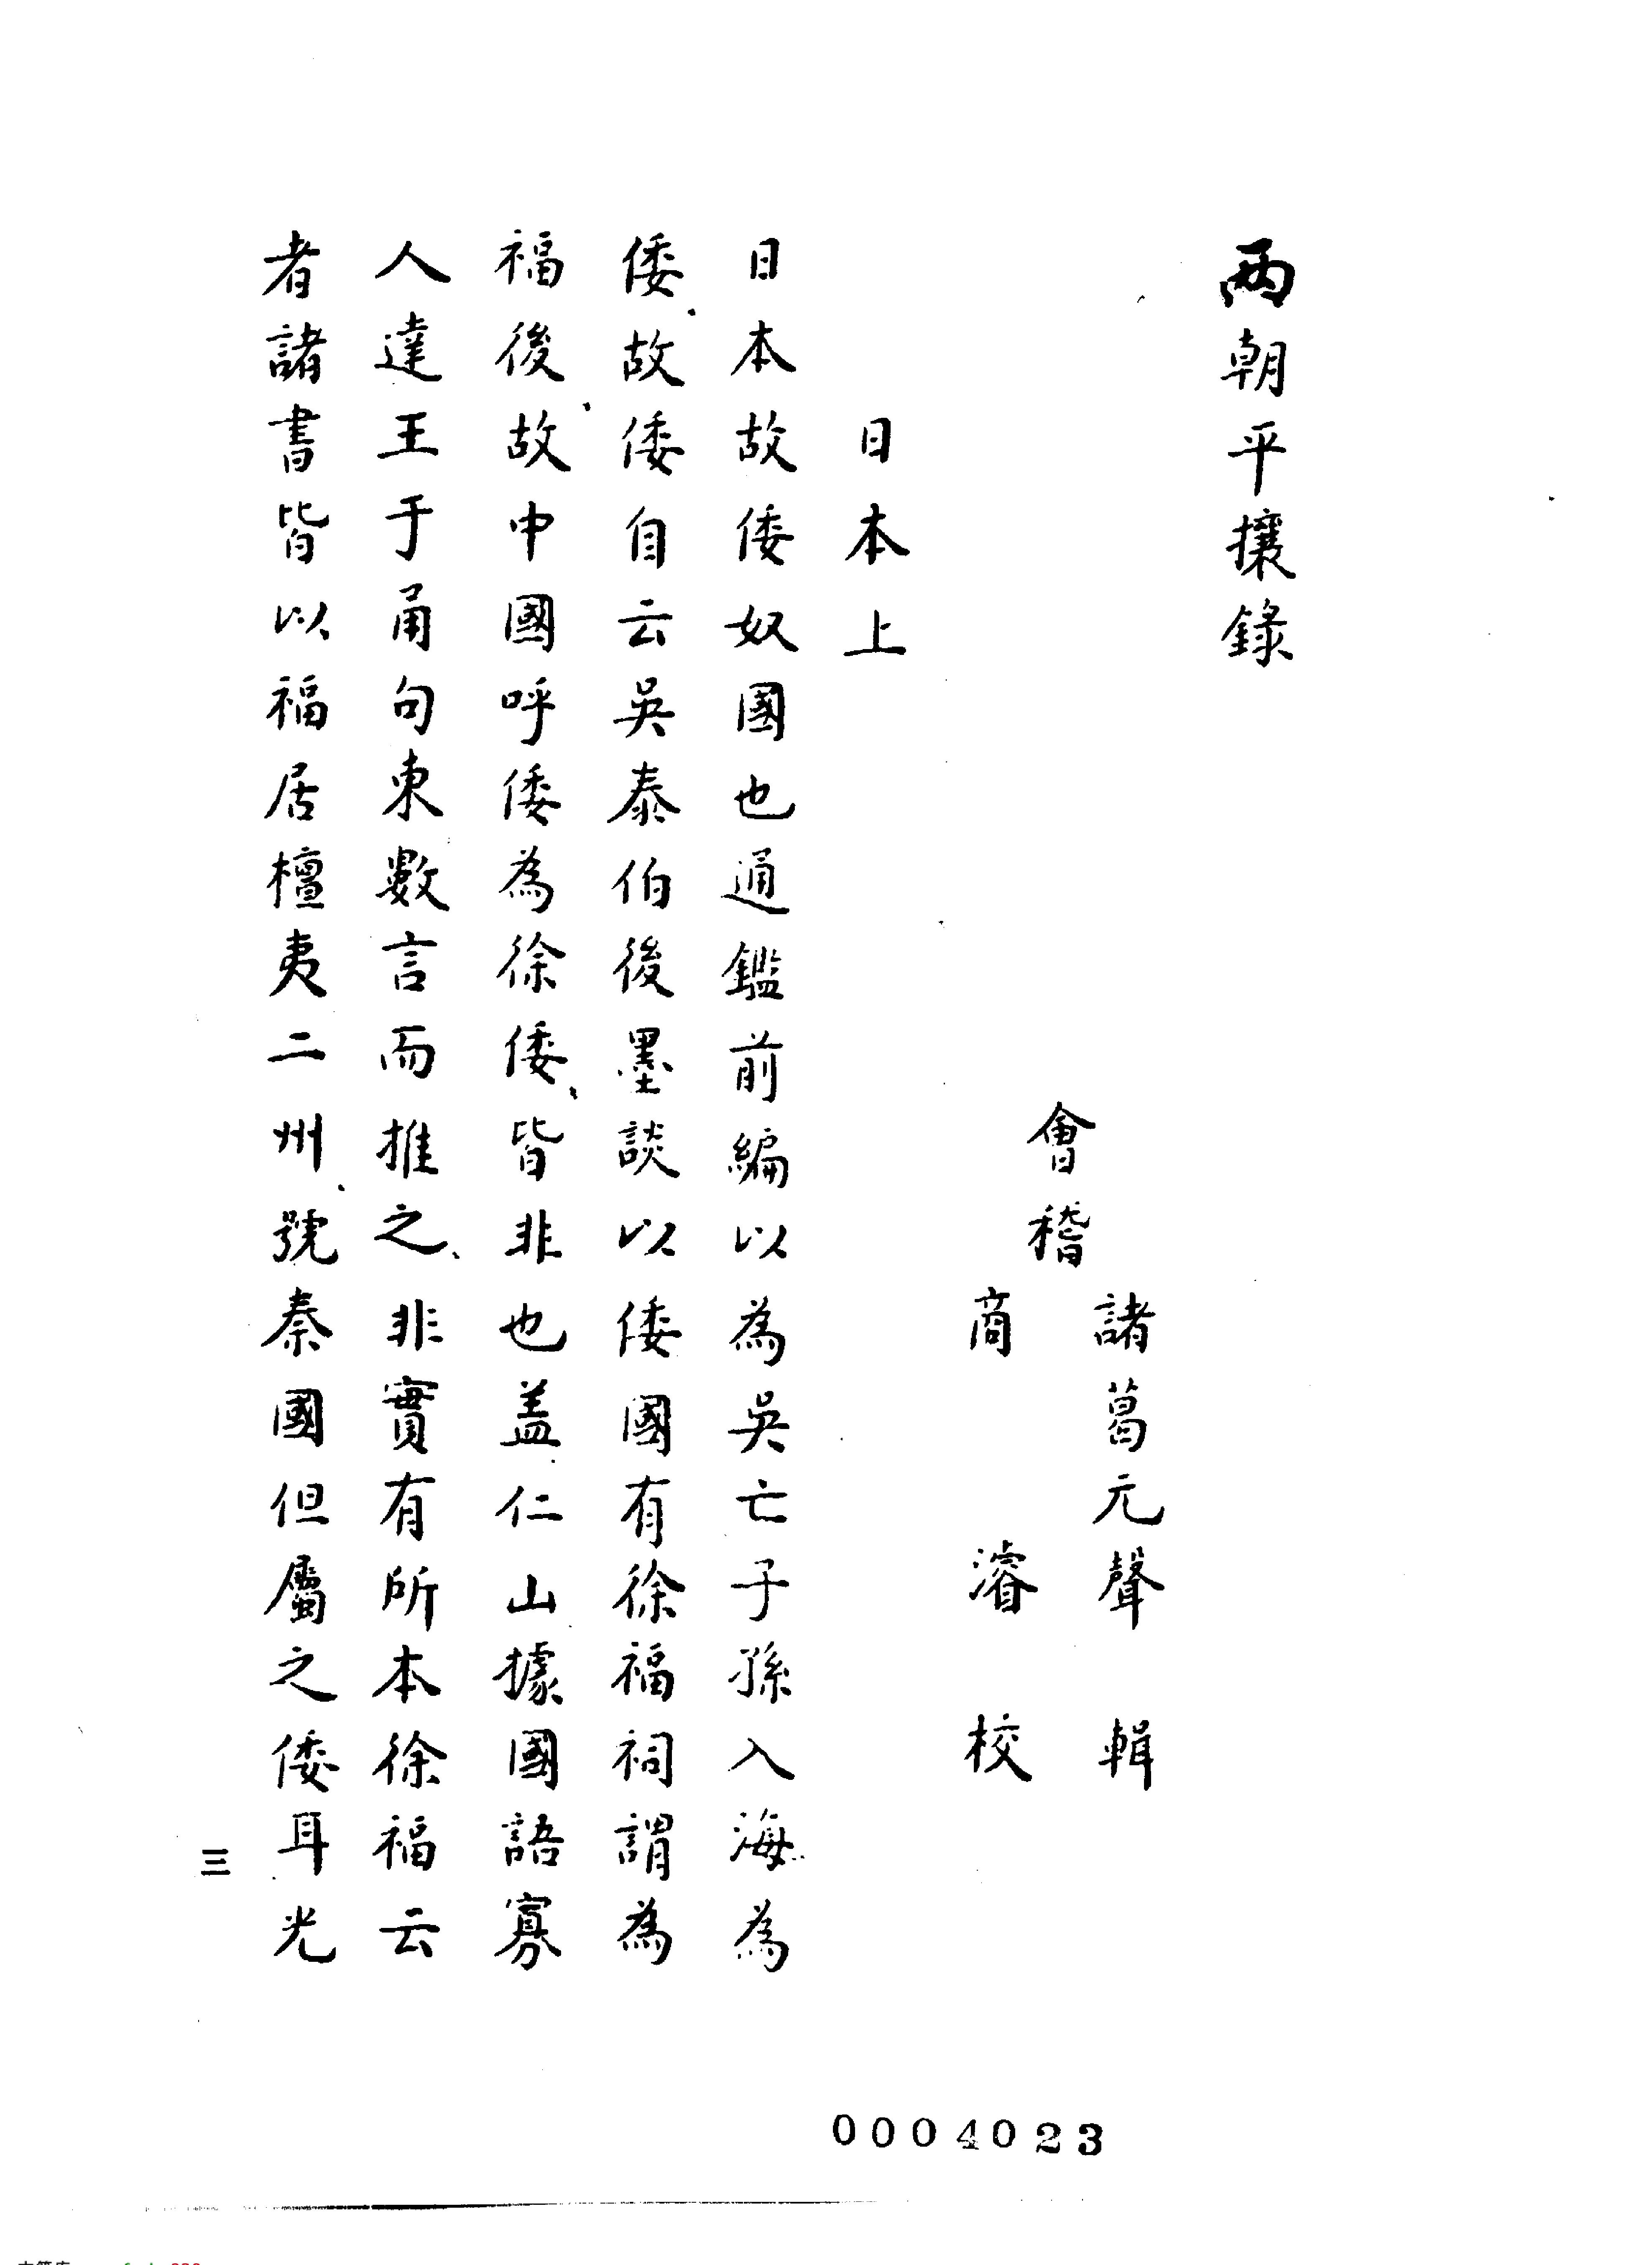 兩朝平攘錄
會稽
諸葛元聲 輯
商 濬 校
日本上
日本故倭奴國也通鑑前編以為吳亡子孫入海為
倭故倭自云吳泰伯後墨談以倭國有徐福祠謂為
福後故中國呼倭為徐倭皆非也盖仁山據國語寡
人達王于甬句東數言而推之非實有所本徐福云
者諸書皆以福居檀夷二州號秦國但屬之倭耳光
三
0004023